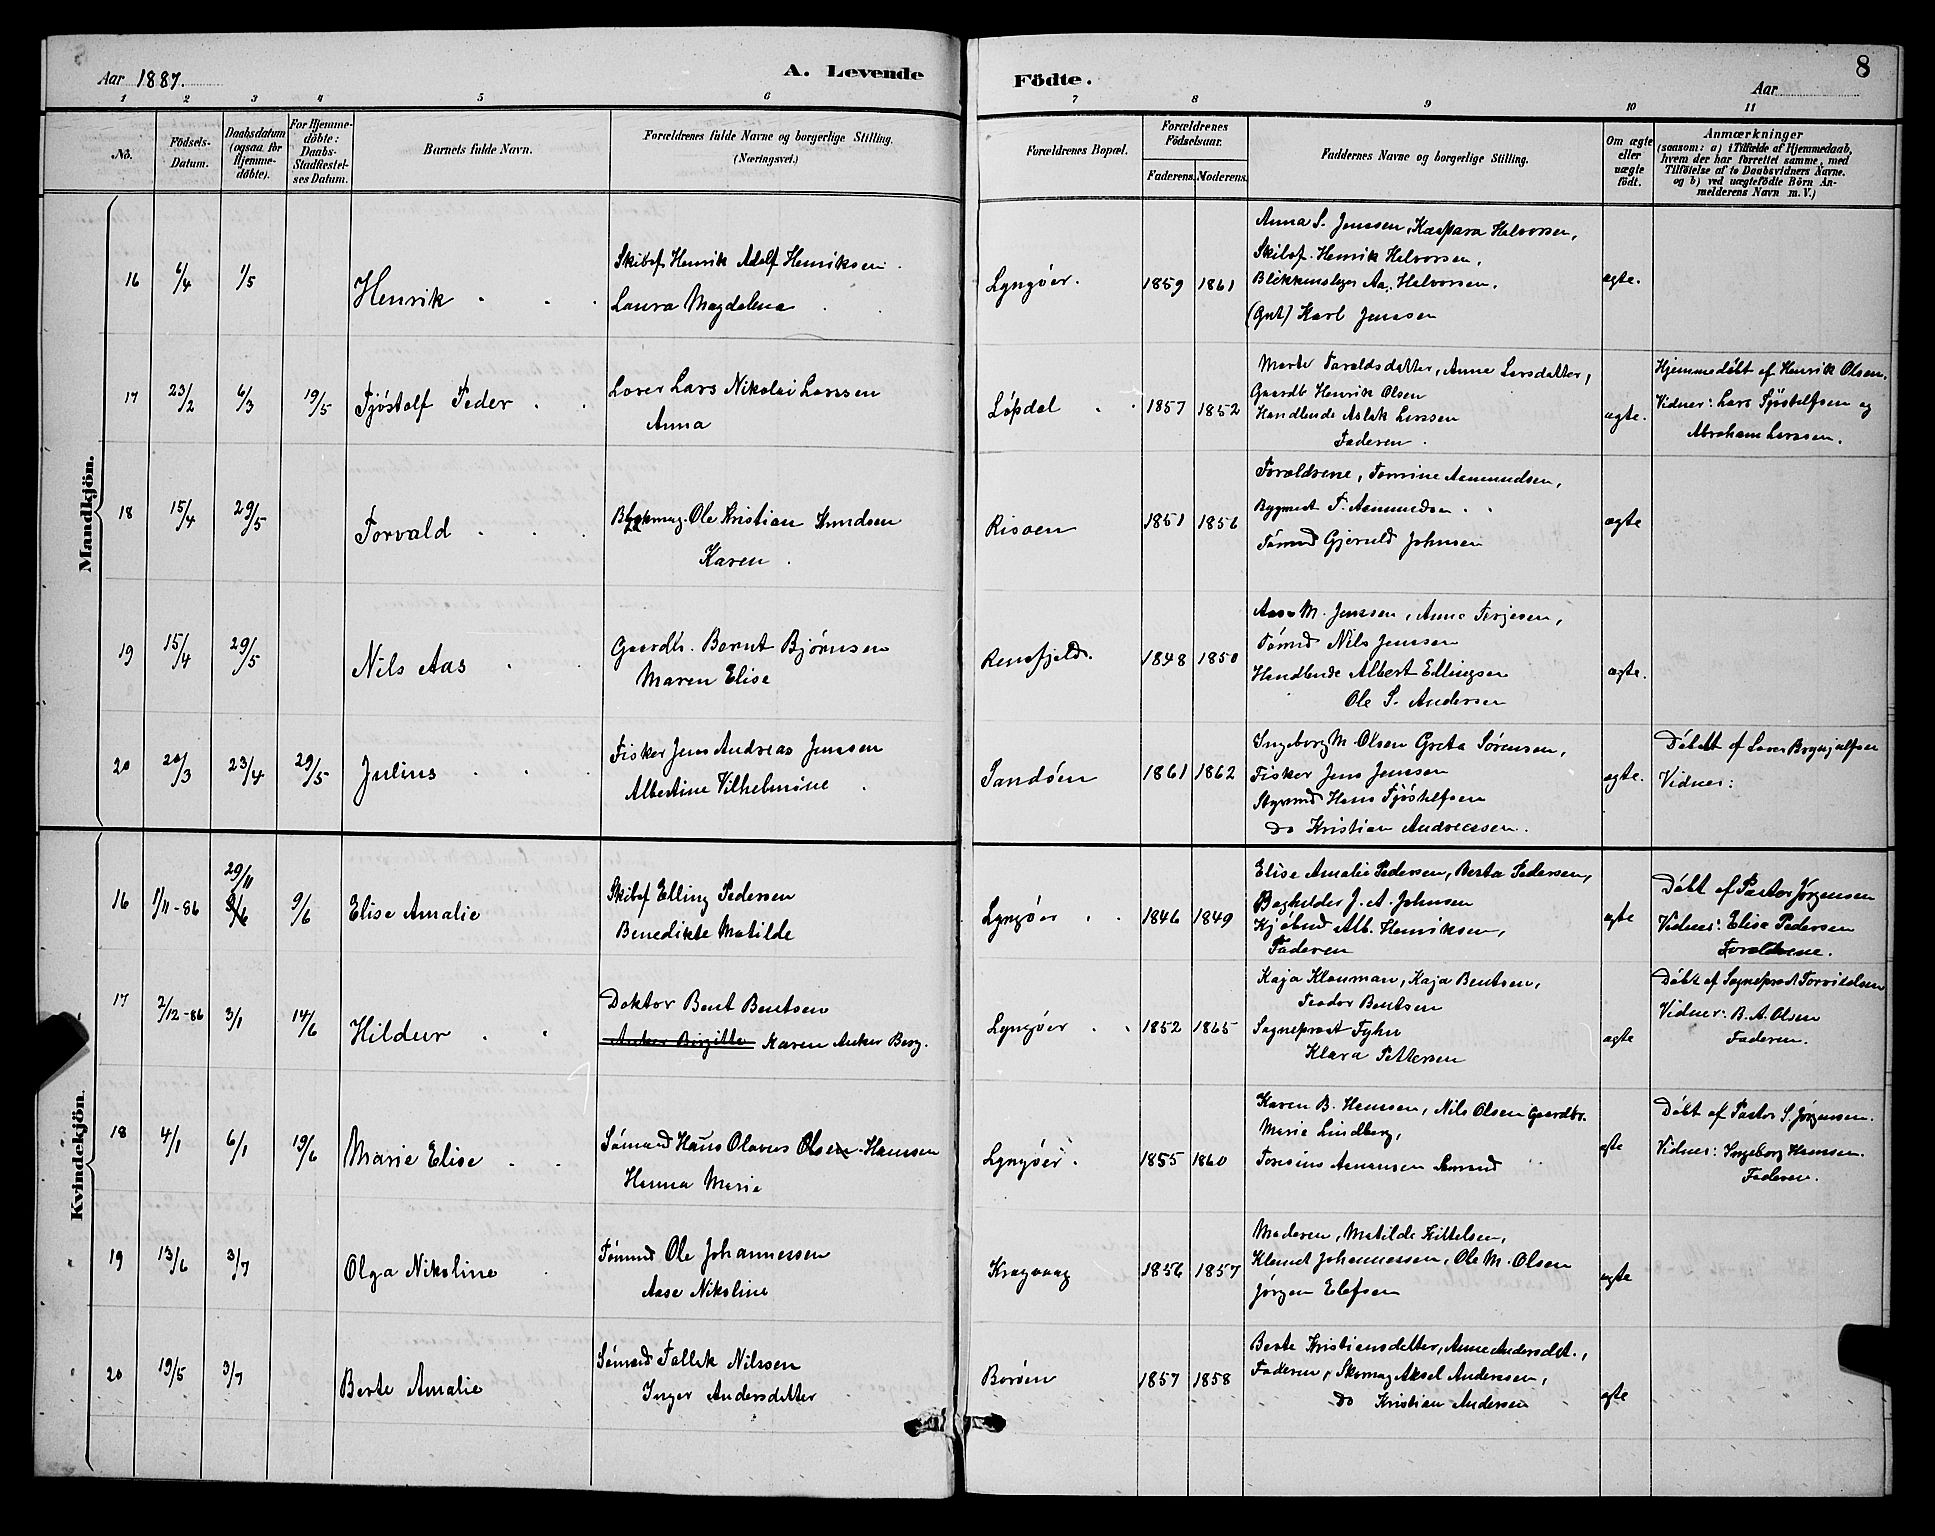 8
Aar 1887.
A. Levende
Födte.
Aar
1 2 3 4 5 6 7 8 9 10 11
No.
Födsels-Datum.
Daabsdatum (ogsaa for Hjemme-döbte).
For Hjemme-döbte: Daabs-Stadfæstel-ses Datum.
Barnets fulde Navn.
Forældrenes fulde Navne og borgerlige Stilling.
(Næringsvei.)
Forældrenes Bopæl.
Forældrenes Födselsaar.
Faderens. Moderens.
Faddernes Navne og borgerlige Stilling.
Om ægte eller uægte födt.
Anmærkninger
(saasom: a) i Tilfælde af Hjemmedaab,
hvem der har forrettet samme, med
Tilföielse af to Daabsvidners Navne.
og b) ved uægtefödte Börn An-
melderens Navn m. V.)
Mandkjön.
16 6/4 1/5 Henrik
Skibsf. Henrik Adolf Henriksen
Laura Magdalena
Lyngöer. 1859 1861
Anna S. Jenssen, Kaspara Halvorsen,
Skibsf. Henrik Halvorsen,
Blikkenslager Aa. Halvorsen.
(Gut) Karl Jenssen
ægte.
17 23/2 6/3 19/5 Tjöstolf Peder
Laver Lars Nikolai Larssen
Anna
Löpdal 1857 1852
Marte Taraldsdatter, Anne Larsdatter,
Gaardb Henrik Olsen
Handlende Aslak Larssen
Faderen.
ægte.
Hjemmedöbt af Henrik Olsen.
Vidner: Lars Tjöstelfsen og
Abraham Larssen.
18 15/4 29/5 Torvald
Blokmag. Ole Kristian Knudsen
Karen
Risöen 1851 1856
Forældrene, Tomine Aamundsen,
Bygmest T. Aamundsen
Tömmd Gjeruld Johnsen
ægte
19 15/4 29/5 Nils Aas
Gaardb. Bernt Björnsen
Maren Elise
Rensfjeld. 1848 1850
Aase M. Jenssen, Anne Terjesen,
Tömmd Nils Jenssen
Handlende Albert Ellingsen
Ole S. Andersen
ægte.
20 20/3 23/4 29/5 Julius
Fisker Jens Andreas Jenssen
Albertine Vilhelmine
Sandöen 1861 1862
Ingeborg M. Olsen Greta Sörensen,
Fisker Jens Jenssen
Styrmd Hans Tjöstelfsen
Do Kristian Andreassen.
ægte.
Döbt af Laver Brynjulfsen
Vidner:
Kvindekjön.
16 1/11-86 29/11 9/6 9/6 Elise Amalie
Skibsf Elling Pedersen
Benedikte Matilde
Lyngöer 1846 1849
Elise Amalie Pedersen, Berta Pedersen,
Bogholder J. A. Johnsen
Kjöbmd Alb. Henriksen,
Faderen
ægte
Döbt af Pastor Jörgensen
Vidner: Elise Pedersen
Forældrene.
17 2/12-86 3/1 14/6 Hildur
Doktor Bent Bentsen
Anker Birgitte Karen Anker Berg.
Lyngöer 1852 1865
Kaja Klouman, Kaja Bentsen,
Teodor Bentsen
Sogneprest Tyhn
Klara Pettersen
ægte
Döbt af Sogneprest Torvildsen
Vidner: B. A. Olsen
Faderen.
18 4/1 6/1 19/6 Marie Elise
Sömand Hans Olavus Olsen Hanssen
Hanna Marie
Lyngöer. 1855 1860
Karen B. Hanssen, Nils Olsen Gaardbr.
Marie Lindberg,
Tomsine Aanonsen Sömand
ægte
Döbt af Pastor S. Jörgensen.
Vidner: Ingeborg Hanssen.
Faderen.
19 13/6 3/7 Olga Nikoline
Tömmd Ole Johannessen
Aase Nikoline
Kragvaag 1856 1857
Moderen, Matilde Kittelsen,
Klemet Johannessen, Ole M. Olsen
Jörgen Elefsen
ægte
20 19/5 3/7 Berte Amalie
Sömand Tallak Nilssen
Inger Andersdatter
Boröen 1857 1858
Berte Kristiansdatter, Anne Andersdt.,
Faderen, Skomag Aksel Anderssen,
Do Kristian Andersen
ægte